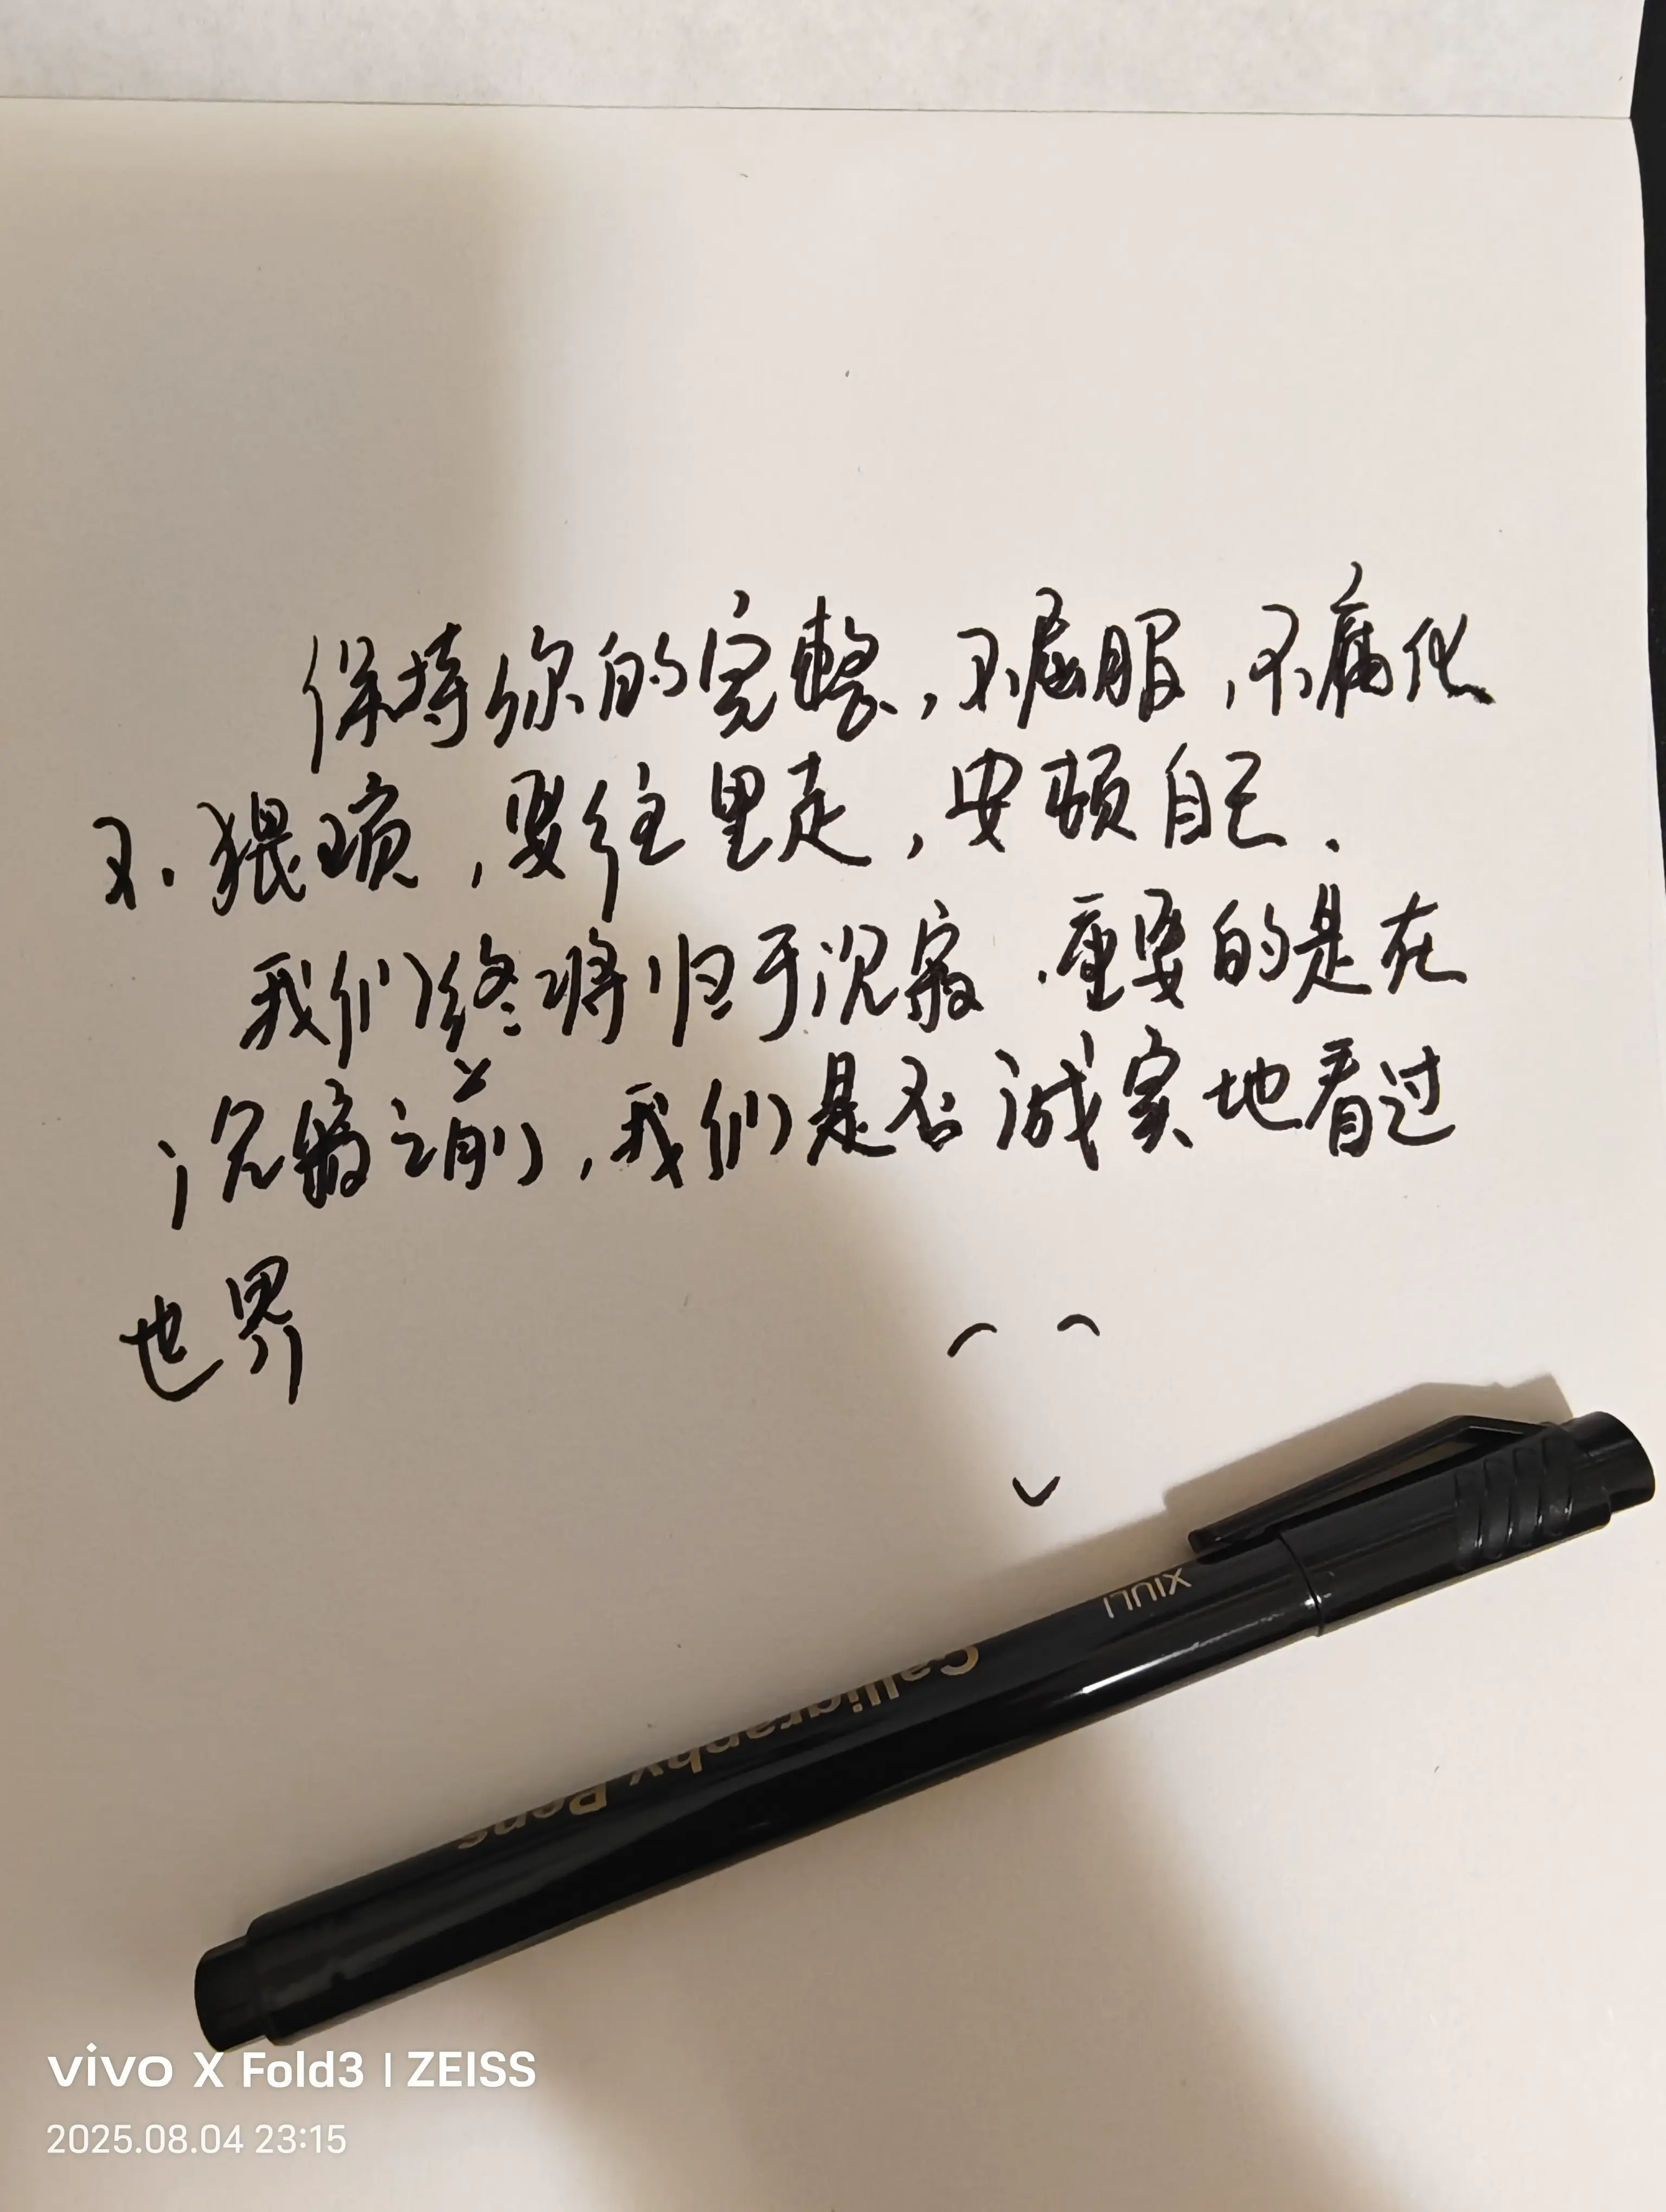 保持你的完整，不屈服，不腐化
不猥琐，要往里走，安顿自己．
我们终将归于沉寂．重要的是在
沉寂之前，我们是否诚实地看过
世界
XIULI
Calligraphy Pens
vivo X Fold3 | ZEISS
2025.08.04 23:15